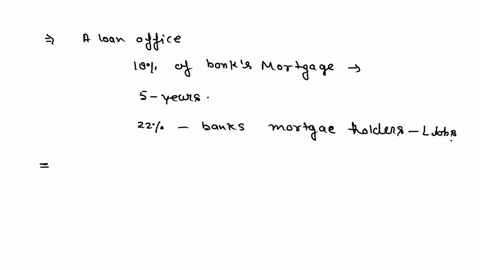 ⇒ A loan office
10% of bonk's Mortgage →
5-years.
22% - banks mortgae holders - L Jobs
=